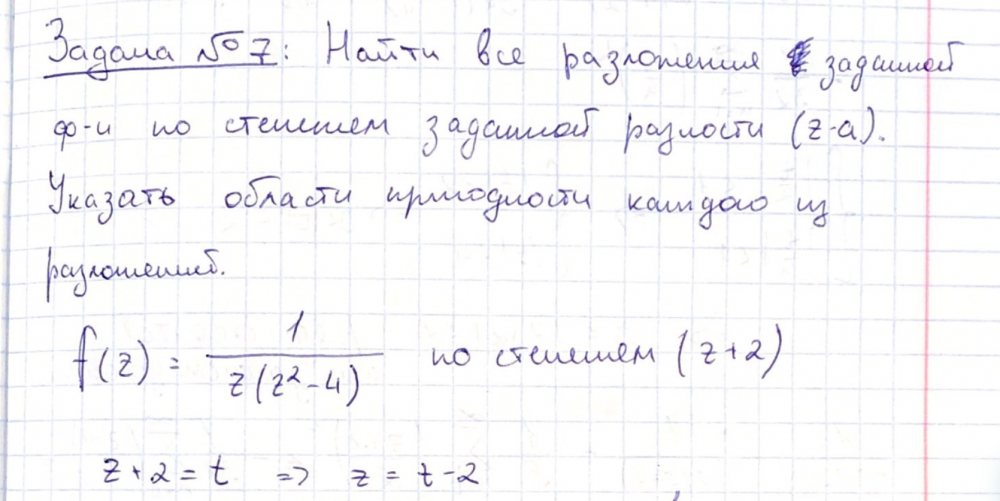 Задача №7: Найти все разложения заданной
ф-и по степеням заданной разности (z-a).
Указать области пригодности каждого из
разложений.
f(z) = 1/(z(z²-4)) по степеням (z+2)
z+2=t => z=t-2